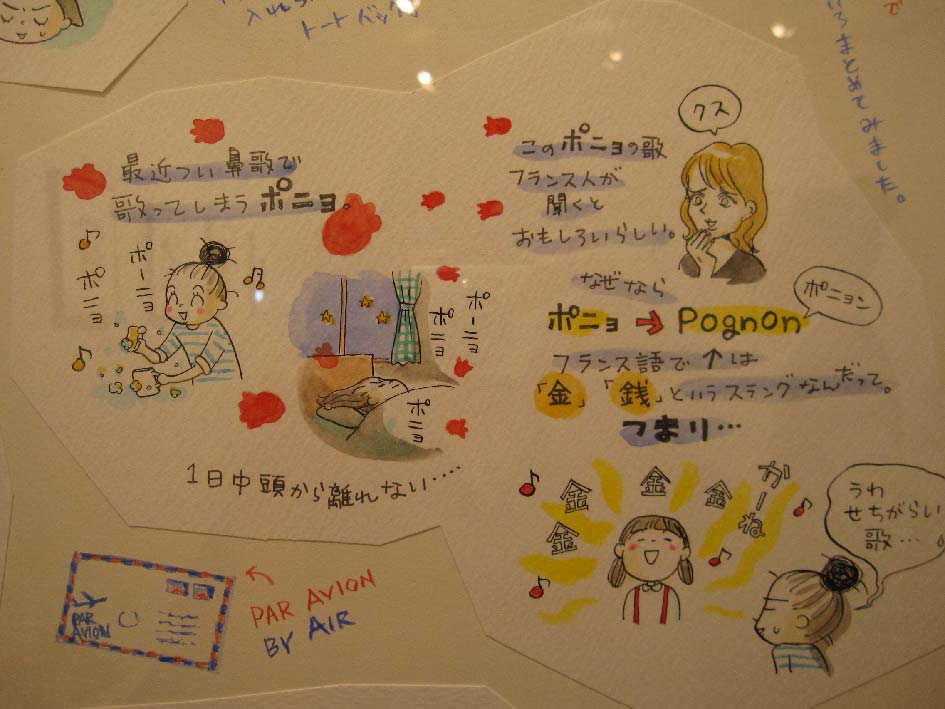 トートバッグ。
いろまとめてみました。
で
最近つい鼻歌で
歌ってしまうポニョ。
ポーニョ
ポニョ
ポーニョ
ポニョ
ポニョ
1日中頭から離れない…
クス
このポニョの歌
フランス人が
聞くと
おもしろいらしい。
なぜなら
ポニョン
ポニョ → Pognon
フランス語で↑は
「金」「銭」というスラングなんだって。
つまり…
かーね
金 金 金 金 金
うわ
せちがらい
歌…
PAR
AVION
PAR AVION
BY AIR